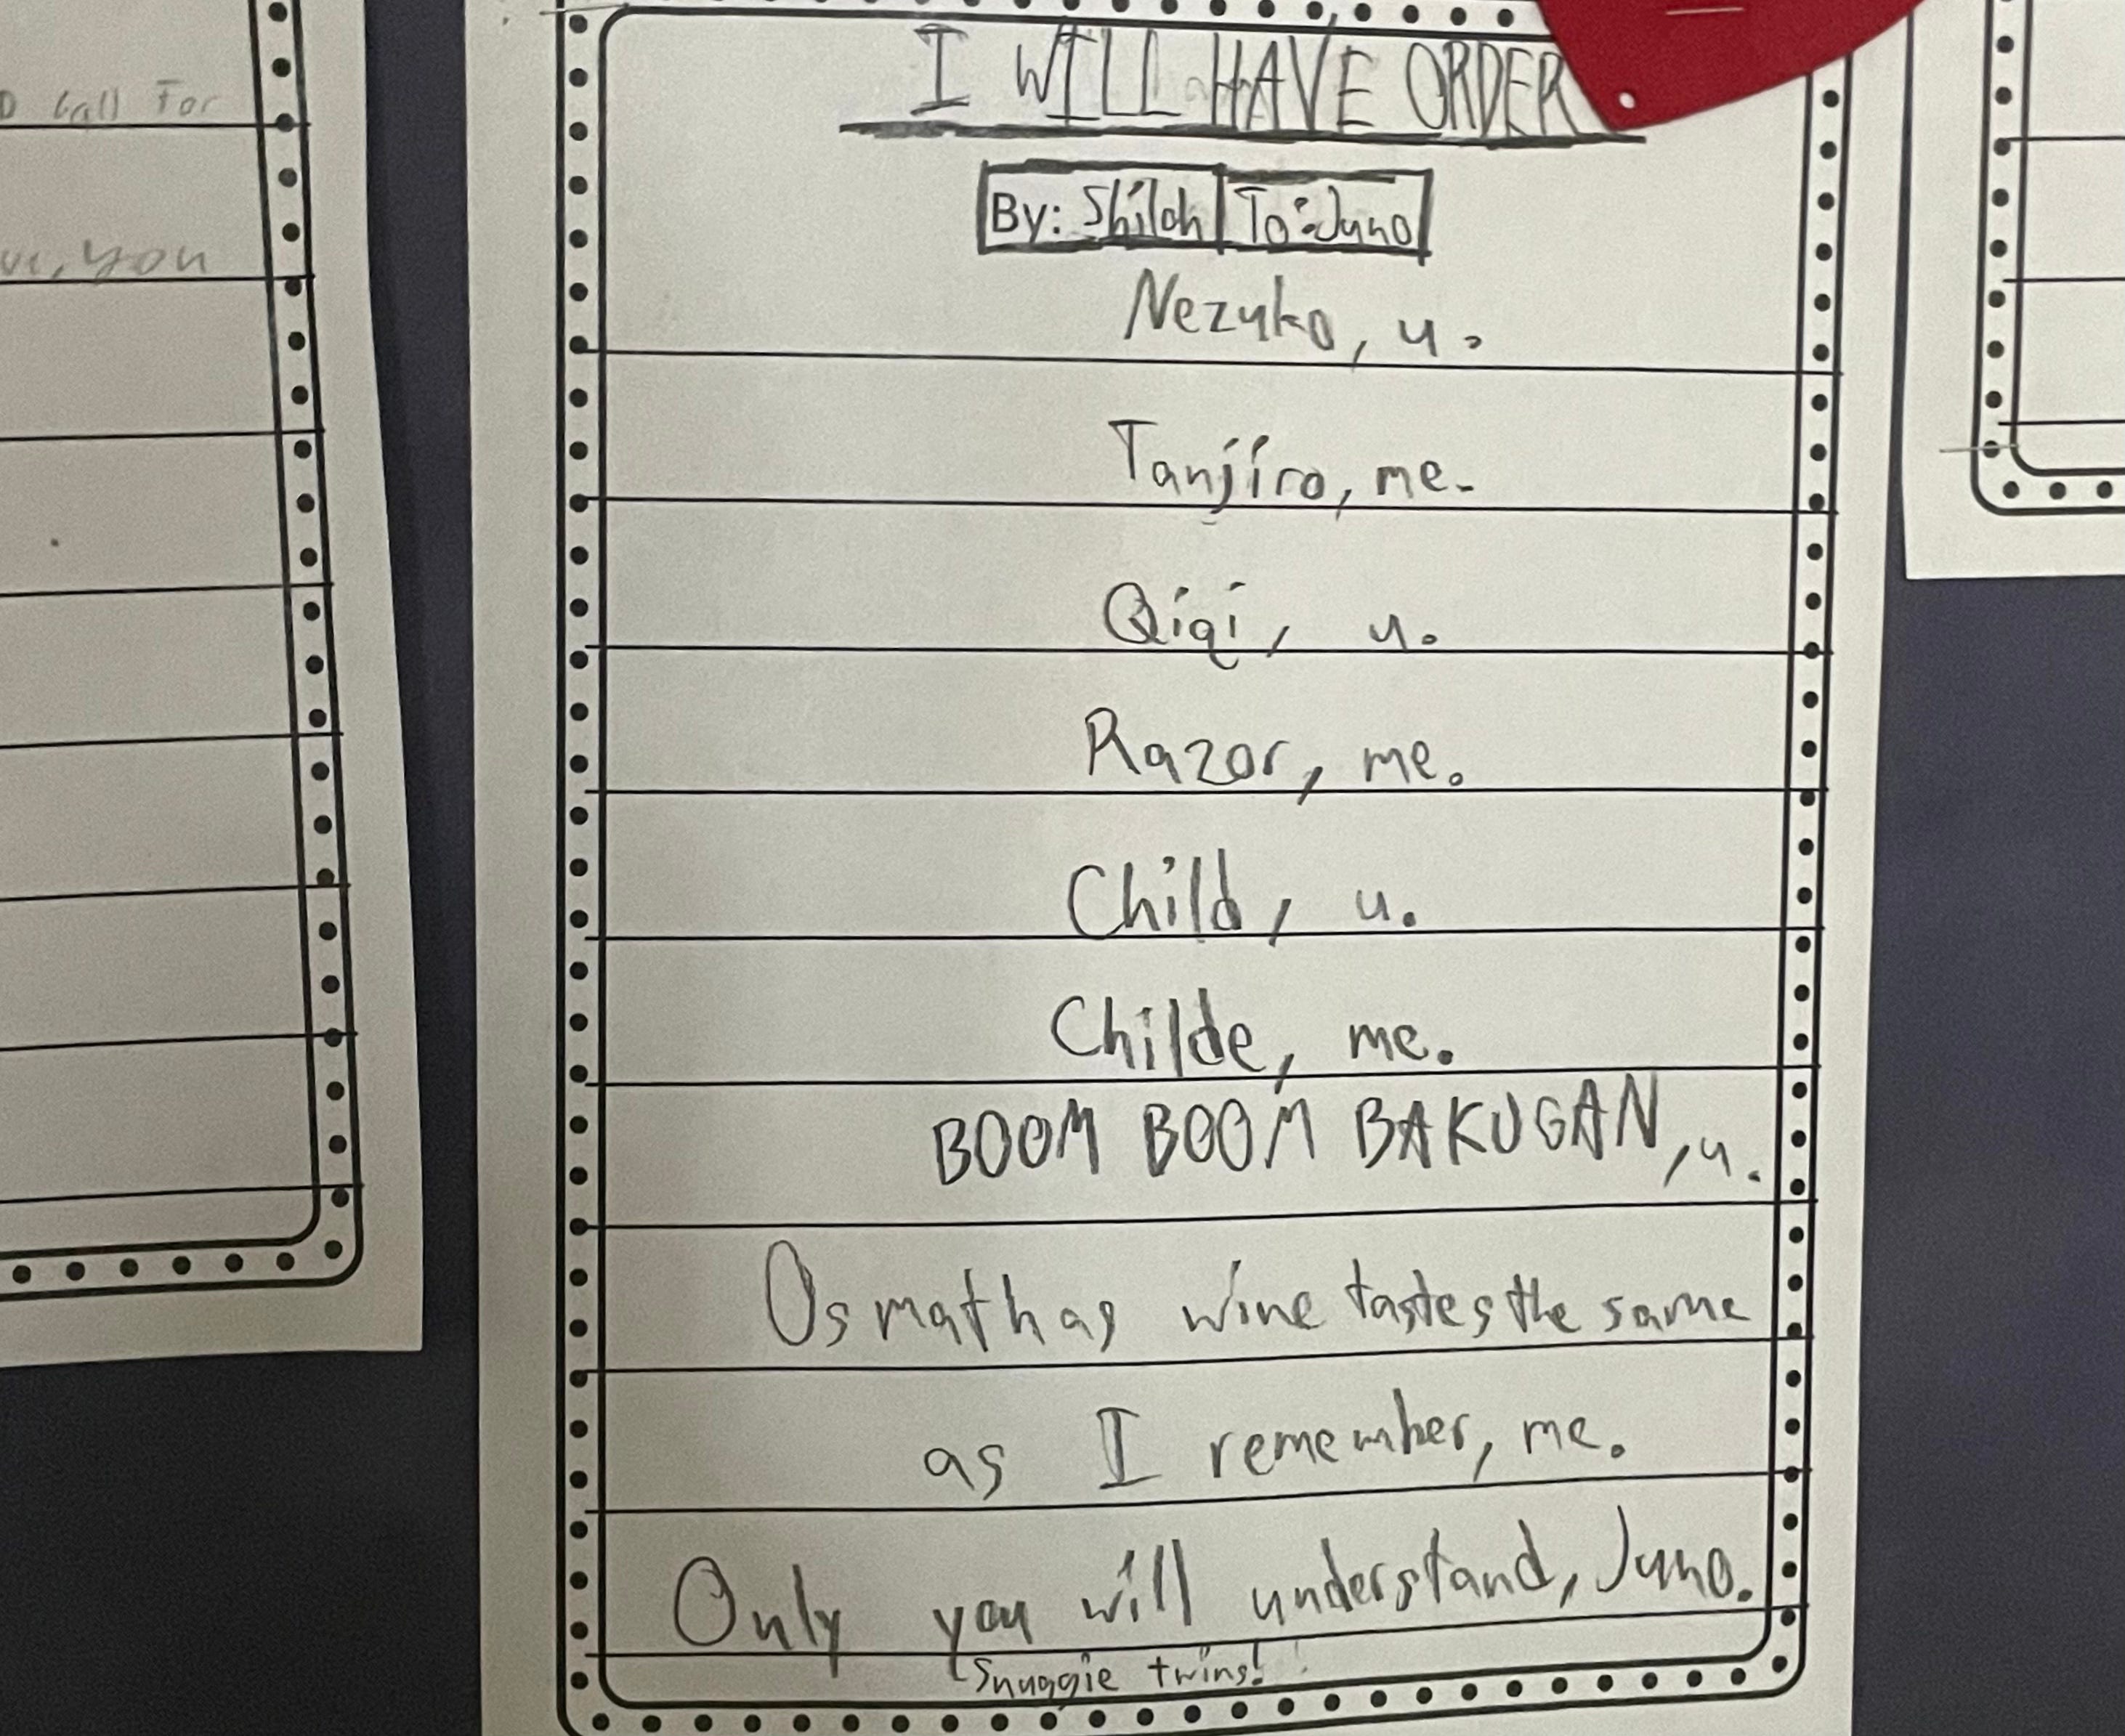 I WILL HAVE ORDER
By: Shiloh To: Juno
Nezuko, u.
Tanjiro, me.
Qiqi, u.
Razor, me.
Child, u.
Childe, me.
BOOM BOOM BAKUGAN, u.
Osmathas wine tastes the same
as I remember, me.
Only you will understand, Juno.
Snuggie twins!
call For
you